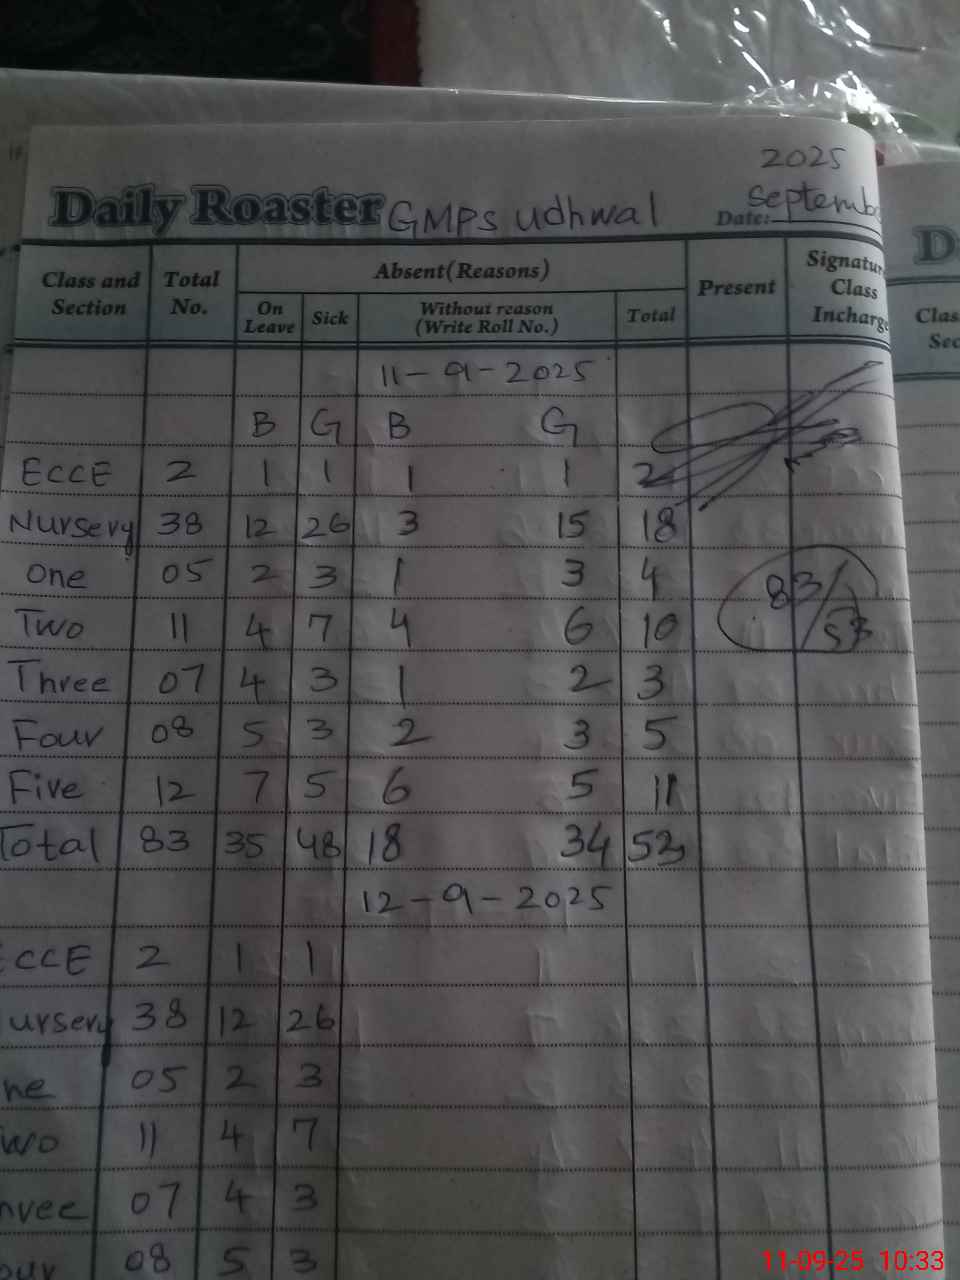 2025
Daily Roaster GMPS Udhwal Date: Septemb
Class and Section Total No. Absent(Reasons) Present Signatur Class Incharge
On Leave Sick Without reason (Write Roll No.) Total
11-9-2025
B G B G
ECCE 2 1 1 1 1 2
Nursery 38 12 26 3 15 18
One 05 2 3 1 3 4
83/53
Two 11 4 7 4 6 10
Three 07 4 3 1 2 3
Four 08 5 3 2 3 5
Five 12 7 5 6 5 11
Total 83 35 48 18 34 53
12-9-2025
CCE 2 1 1
ursery 38 12 26
ne 05 2 3
wo 11 4 7
hree 07 4 3
our 08 5 3
D
Clas
Sec
11-09-25 10:33